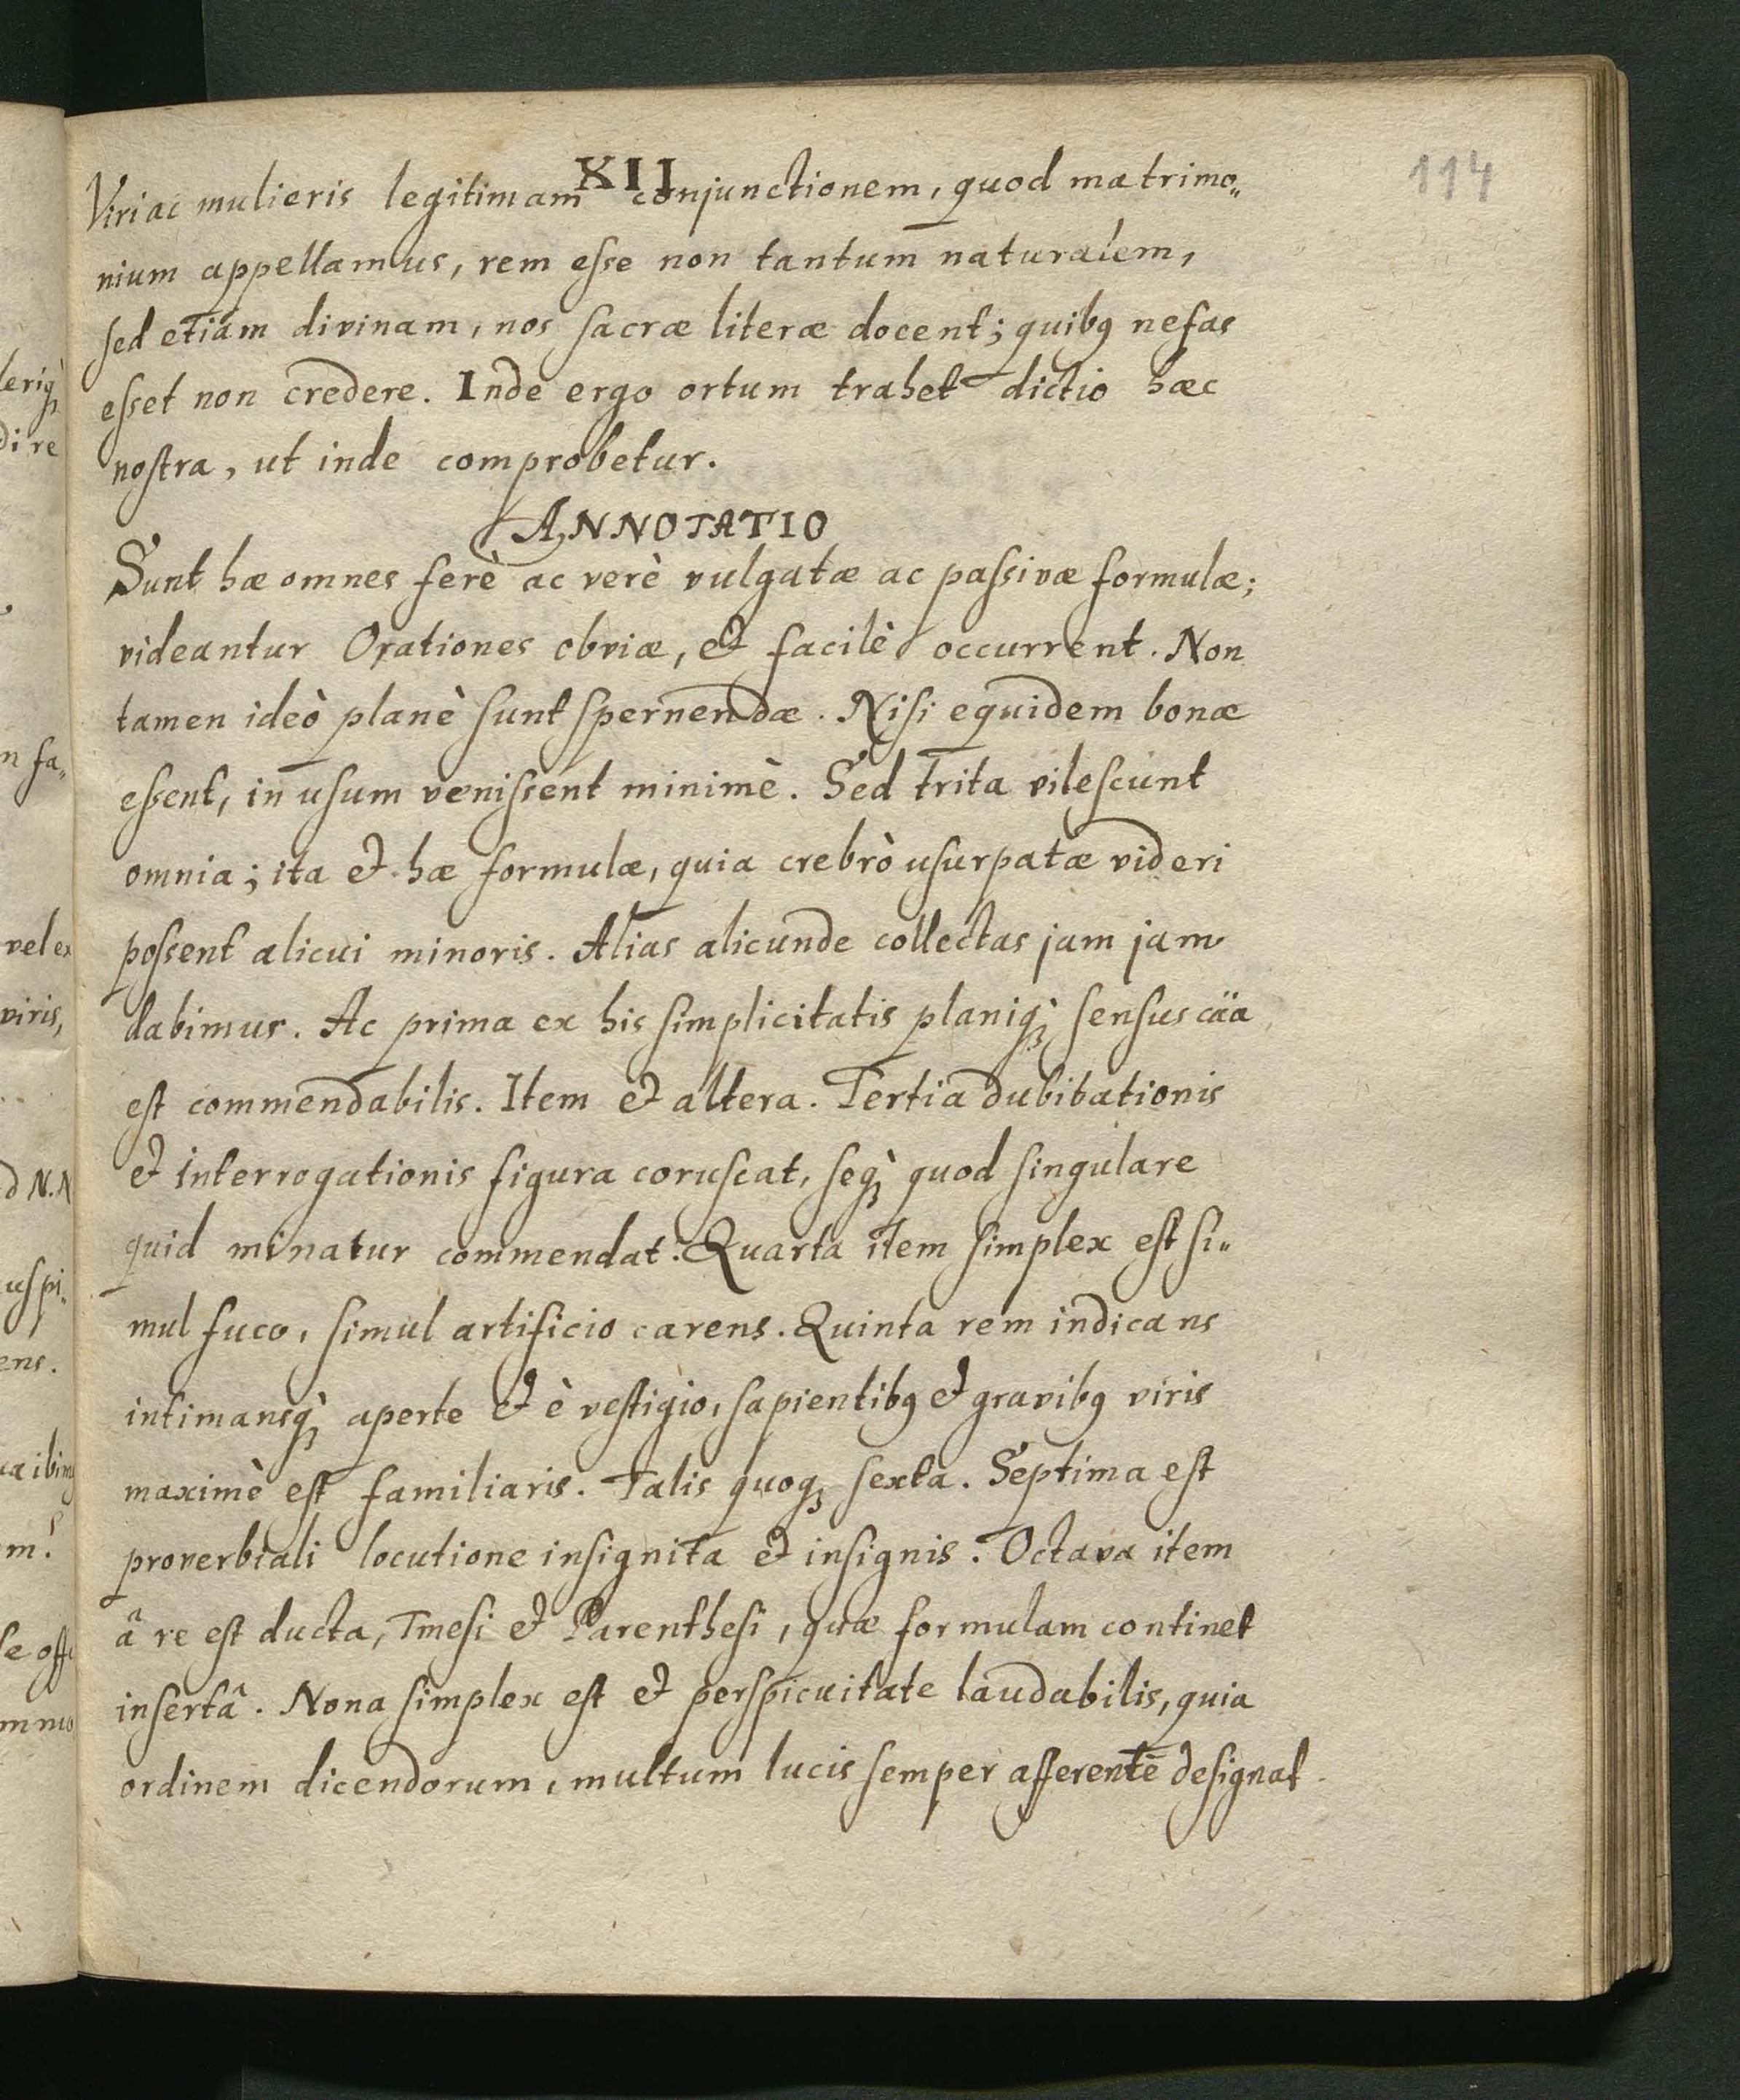 114
XII
Viri ac mulieris legitimam conjunctionem, quod matrimo„
nium appellamus, rem eſse non tantum naturalem,
ſed etiam divinam, nos ſacræ literæ docent; quibꝯ nefas
eſset non credere. Inde ergo ortum trahet dictio hæc
noſtra, ut inde comprobetur.
ANNOTATIO
Sunt hæ omnes ferè ac verè vulgatæ ac paſsivæ formulæ;
videantur Orationes obviæ, & facilè occurrent. Non
tamen ideò planè ſunt ſpernendæ. Niſi equidem bonæ
eſsent, in uſum veniſsent minimè. Sed trita vileſcunt
omnia; ita & hæ formulæ, quia crebrò uſurpatæ videri
poſsent alicui minoris. Alias alicunde collectas jam jam
dabimus. Ac prima ex his ſimplicitatis planiq; ſensus cäa
eſt commendabilis. Item & altera. Tertia dubitationis
& interrogationis figura coruſcat, ſeq; quod ſingulare
quid minatur commendat. Quarta item ſimplex eſt ſi„
mul fuco, ſimul artificio carens. Quinta rem indicans
intimansq; aperte & è veſtigio, ſapientibꝯ & gravibꝯ viris
maximè eſt familiaris. Talis quoq; ſexta. Septima eſt
proverbiali locutione inſignita & inſignis. Octava item
â re eſt ducta, Tmeſi & Parentheſi, quæ formulam continet
inſertâ. Nona ſimplex eſt & perſpicuitate laudabilis, quia
ordinem dicendorum, multum lucis ſemper afferentē deſignat